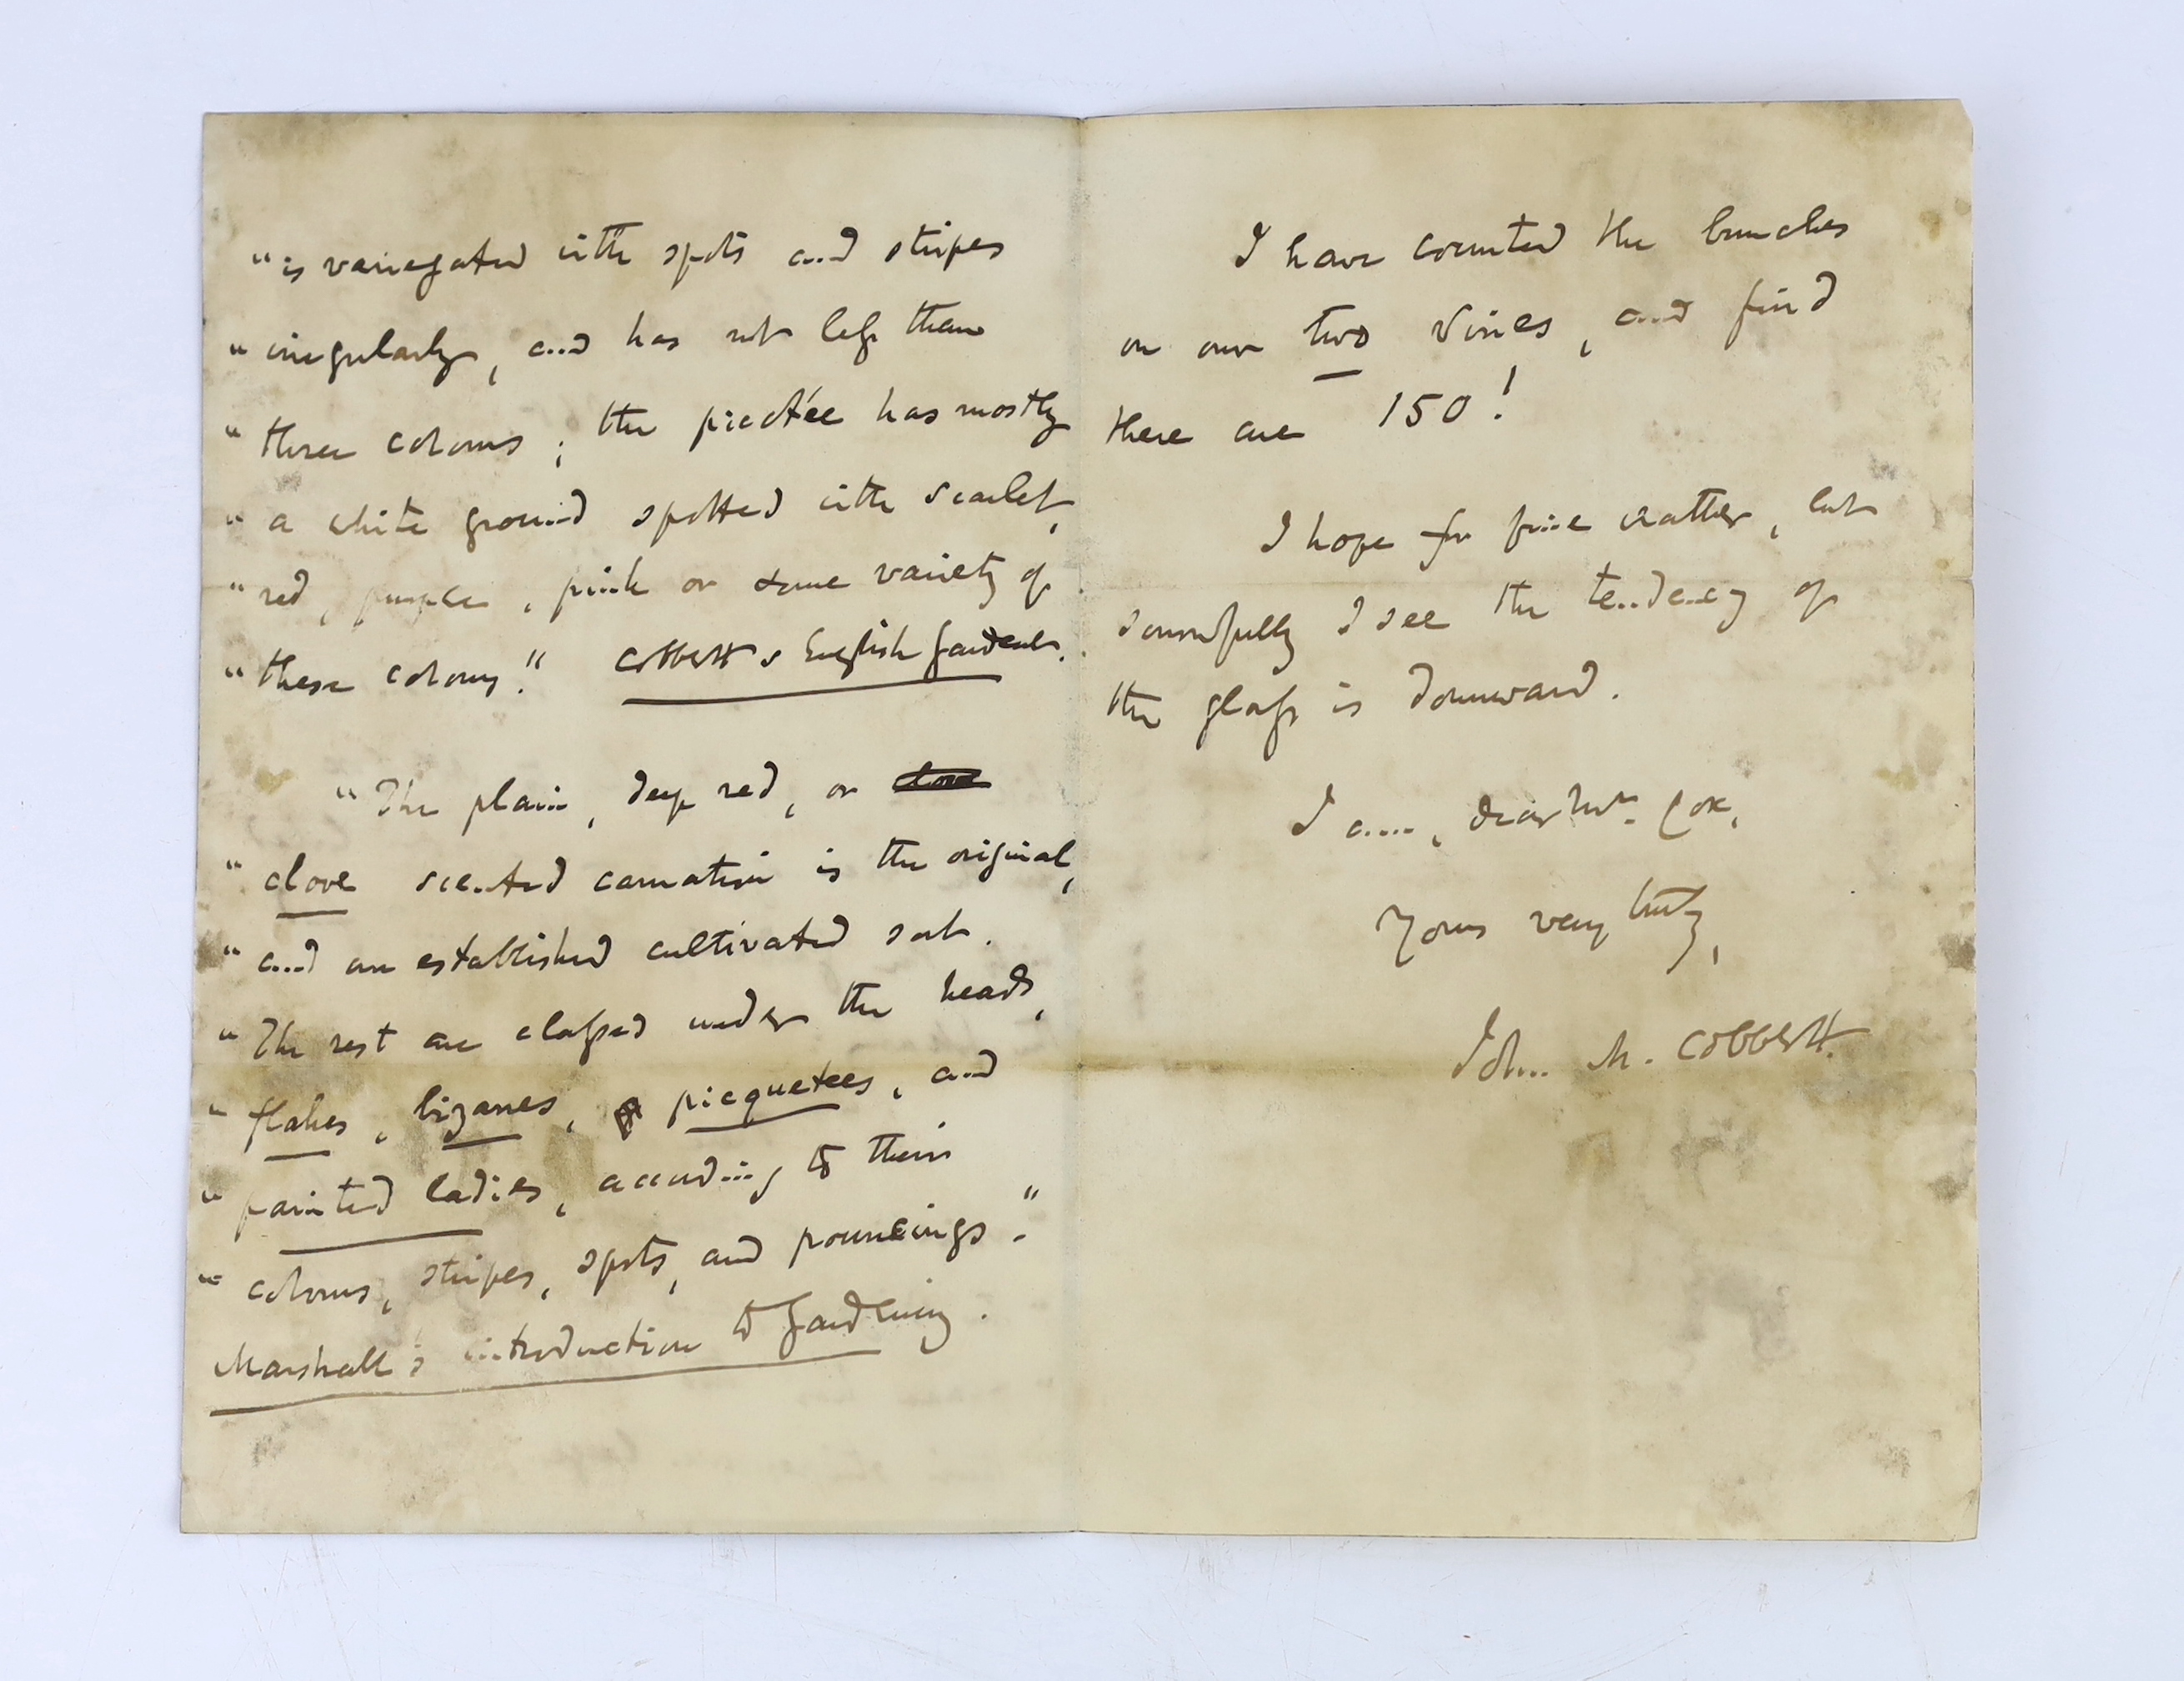 "is variegated with spots and stripes
"irregularly, and has not less than
"three colours; the picotée has mostly
"a white ground spotted with scarlet,
"red, purple, pink or some variety of
"these colours." Cobbett's English Gardener.
"The plain, deep red, or
"clove scented carnation is the original,
"and an established cultivated sort.
"The rest are classed under the heads,
"flakes, bizarres, picquetees, and
"painted ladies, according to their
"colours, stripes, spots, and pouncings."
Marshall's introduction to Gardening.
I have counted the bunches
on our two Vines, and find
there are 150!
I hope for fine weather, but
sorrowfully I see the tendency of
the glass is downward.
I am, dear Mr. Cox,
Yours very truly,
John M. Cobbett.